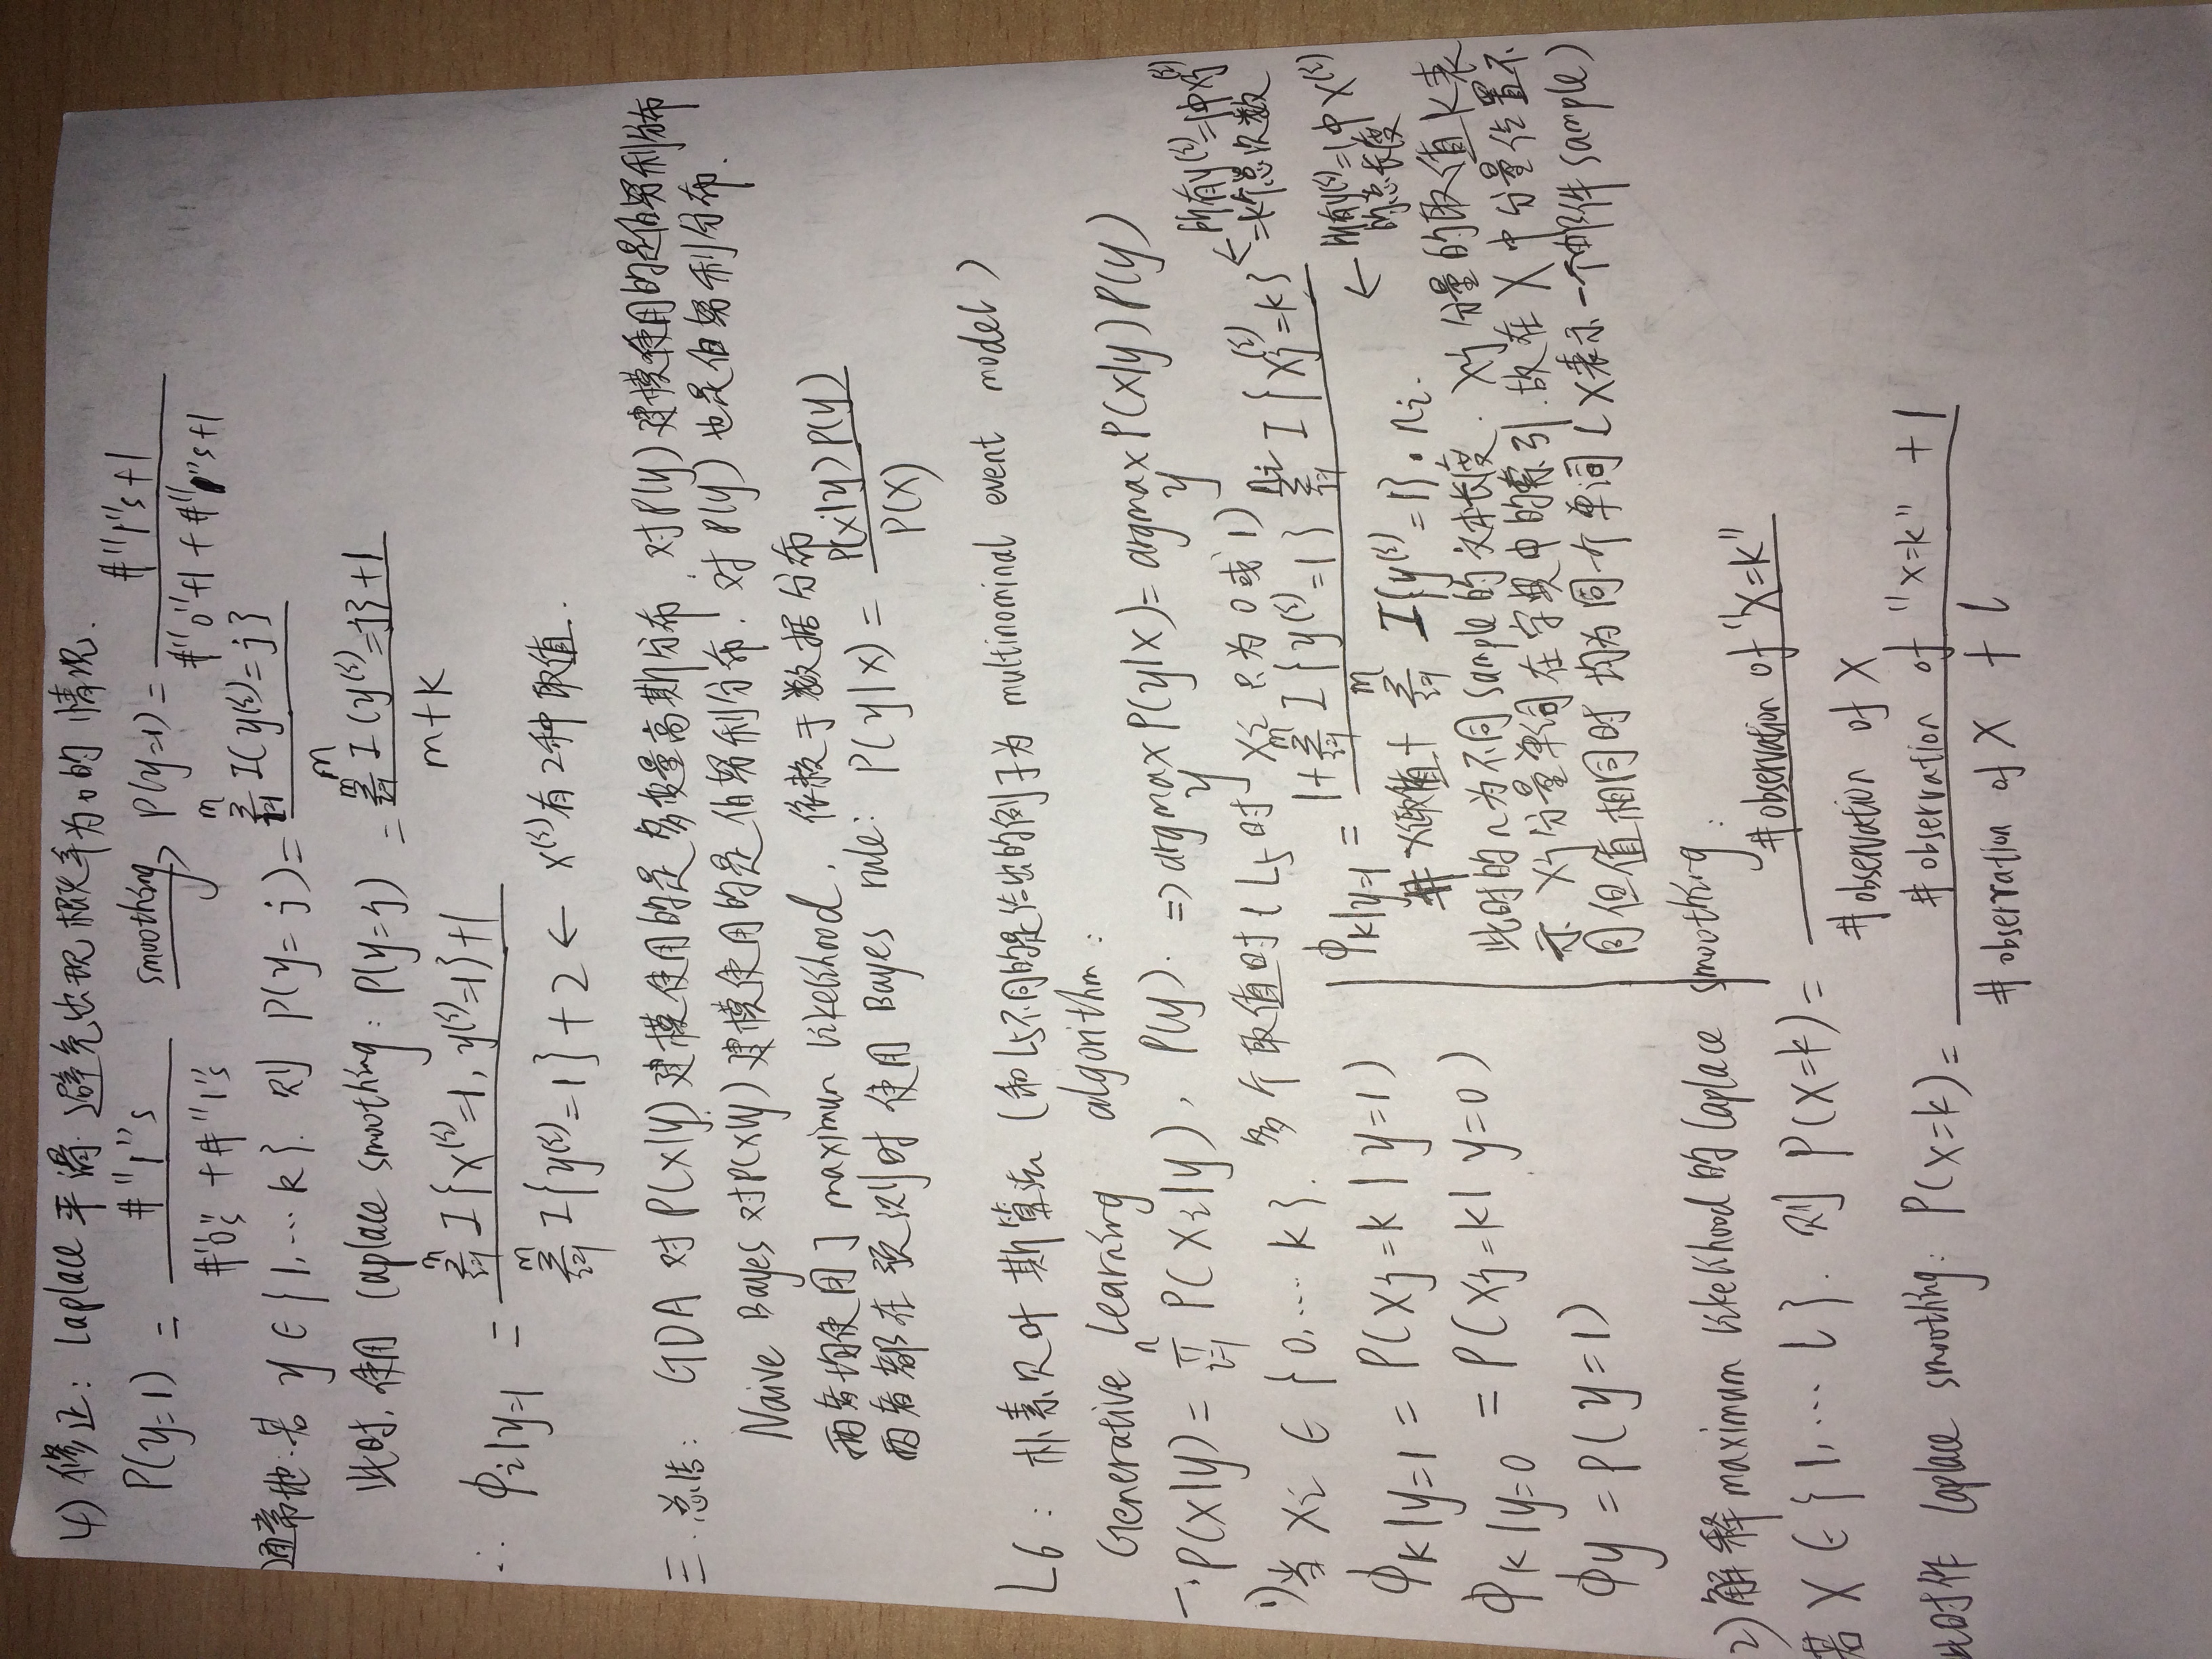 4) 修正: Laplace 平滑. 避免出现概率为0的 情况.
P(y=1) = #"1"s / (#"0"s + #"1"s) smoothing→ P(y=1) = (#"1"s+1) / (#"0"+1 + #"1"s+1)
通常地: 若 y ∈ {1, … k}. 则 P(y=j) = Σ_{i=1}^{m} I{y^(i)=j} / m
此时, 使用 Laplace smoothing: P(y=j) = (Σ_{i=1}^{m} I{y^(i)=j}+1) / (m+k)
∴ φ_{i|y=1} = (Σ_{i=1}^{m} I{x^(i)=1, y^(i)=1}+1) / (Σ_{i=1}^{m} I{y^(i)=1}+2) ← x^(i)有2种取值.
三. 总结: GDA 对 P(x|y) 建模使用的是多变量高斯分布, 对P(y) 建模使用的是伯努利分布
Naive Bayes 对P(x|y) 建模使用的是伯努利分布. 对 P(y) 也是伯努利分布.
两者均使用了 maximun likelihood, 依赖于数据分布
两者都在预测时使用 Bayes rule: P(y|x) = P(x|y)P(y) / P(x)
L6: 朴素贝叶斯算法 (和L5不同的是给出的例子为 multinominal event model)
Generative learning algorithm:
一. P(x|y) = Π_{i=1}^{n} P(x_i|y), P(y). ⇒ argmax_y P(y|x) = argmax_y P(x|y)P(y)
1) 当 x_i ∈ {0, … k}. 多个取值时 (L5时 x_i 只为 0 或 1)
φ_{k|y=1} = P(x_j=k | y=1)
φ_{k|y=0} = P(x_j=k | y=0)
φ_y = P(y=1)
φ_{k|y=1} = (1+Σ_{i=1}^{m} I{y^(i)=1} Σ_{i=1}^{n_i} I{x_j^(i)=k}) / (# x_i取值 + Σ_{i=1}^{m} I{y^(i)=1}·n_i.)
← 所有y^(i)=1中x_j^(i)
=k个总次数
← 所有y^(i)=1中 x^(i)
的总长度
此时的n为不同sample的文本长度. x_j分量的取值k表
示 x_j分量单词在字典中的索引. 故在 X 中分量位置不
同但值相同时均为同一个单词 (X表示一个邮件sample)
2) 解释 maximum likelihood 的 laplace smoothing:
若 X ∈ {1, … l}. 则 P(x=k) = # observation of "x=k" / # observation of X
此时作 laplace smoothing: P(x=k) = (# observation of "x=k" + 1) / (# observation of X + l)